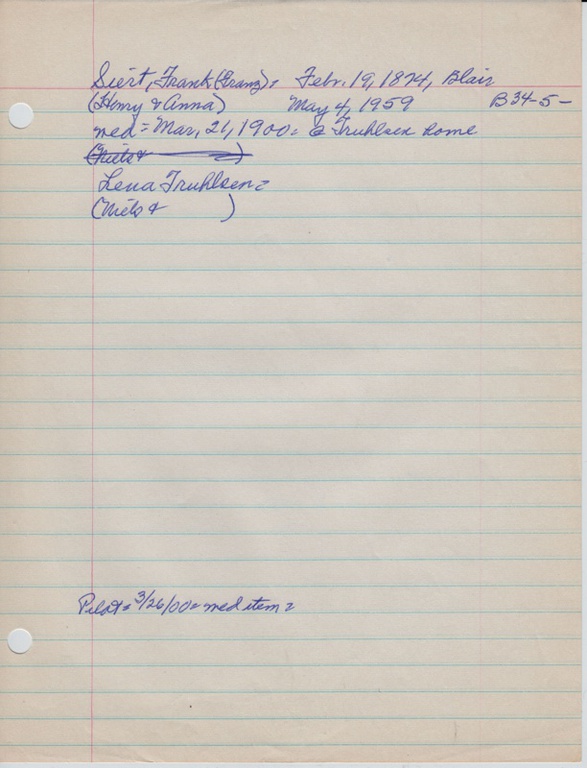 Siert, Frank (Franz) = Febr. 19, 1874, Blair
(Henry & Anna) May 4, 1959 B34-5-
med = Mar, 21, 1900 = @ Truhlsen home
(Niels & )
Lena Truhlsen =
(Niels & )
Pilot = 3/26/00 = med item =